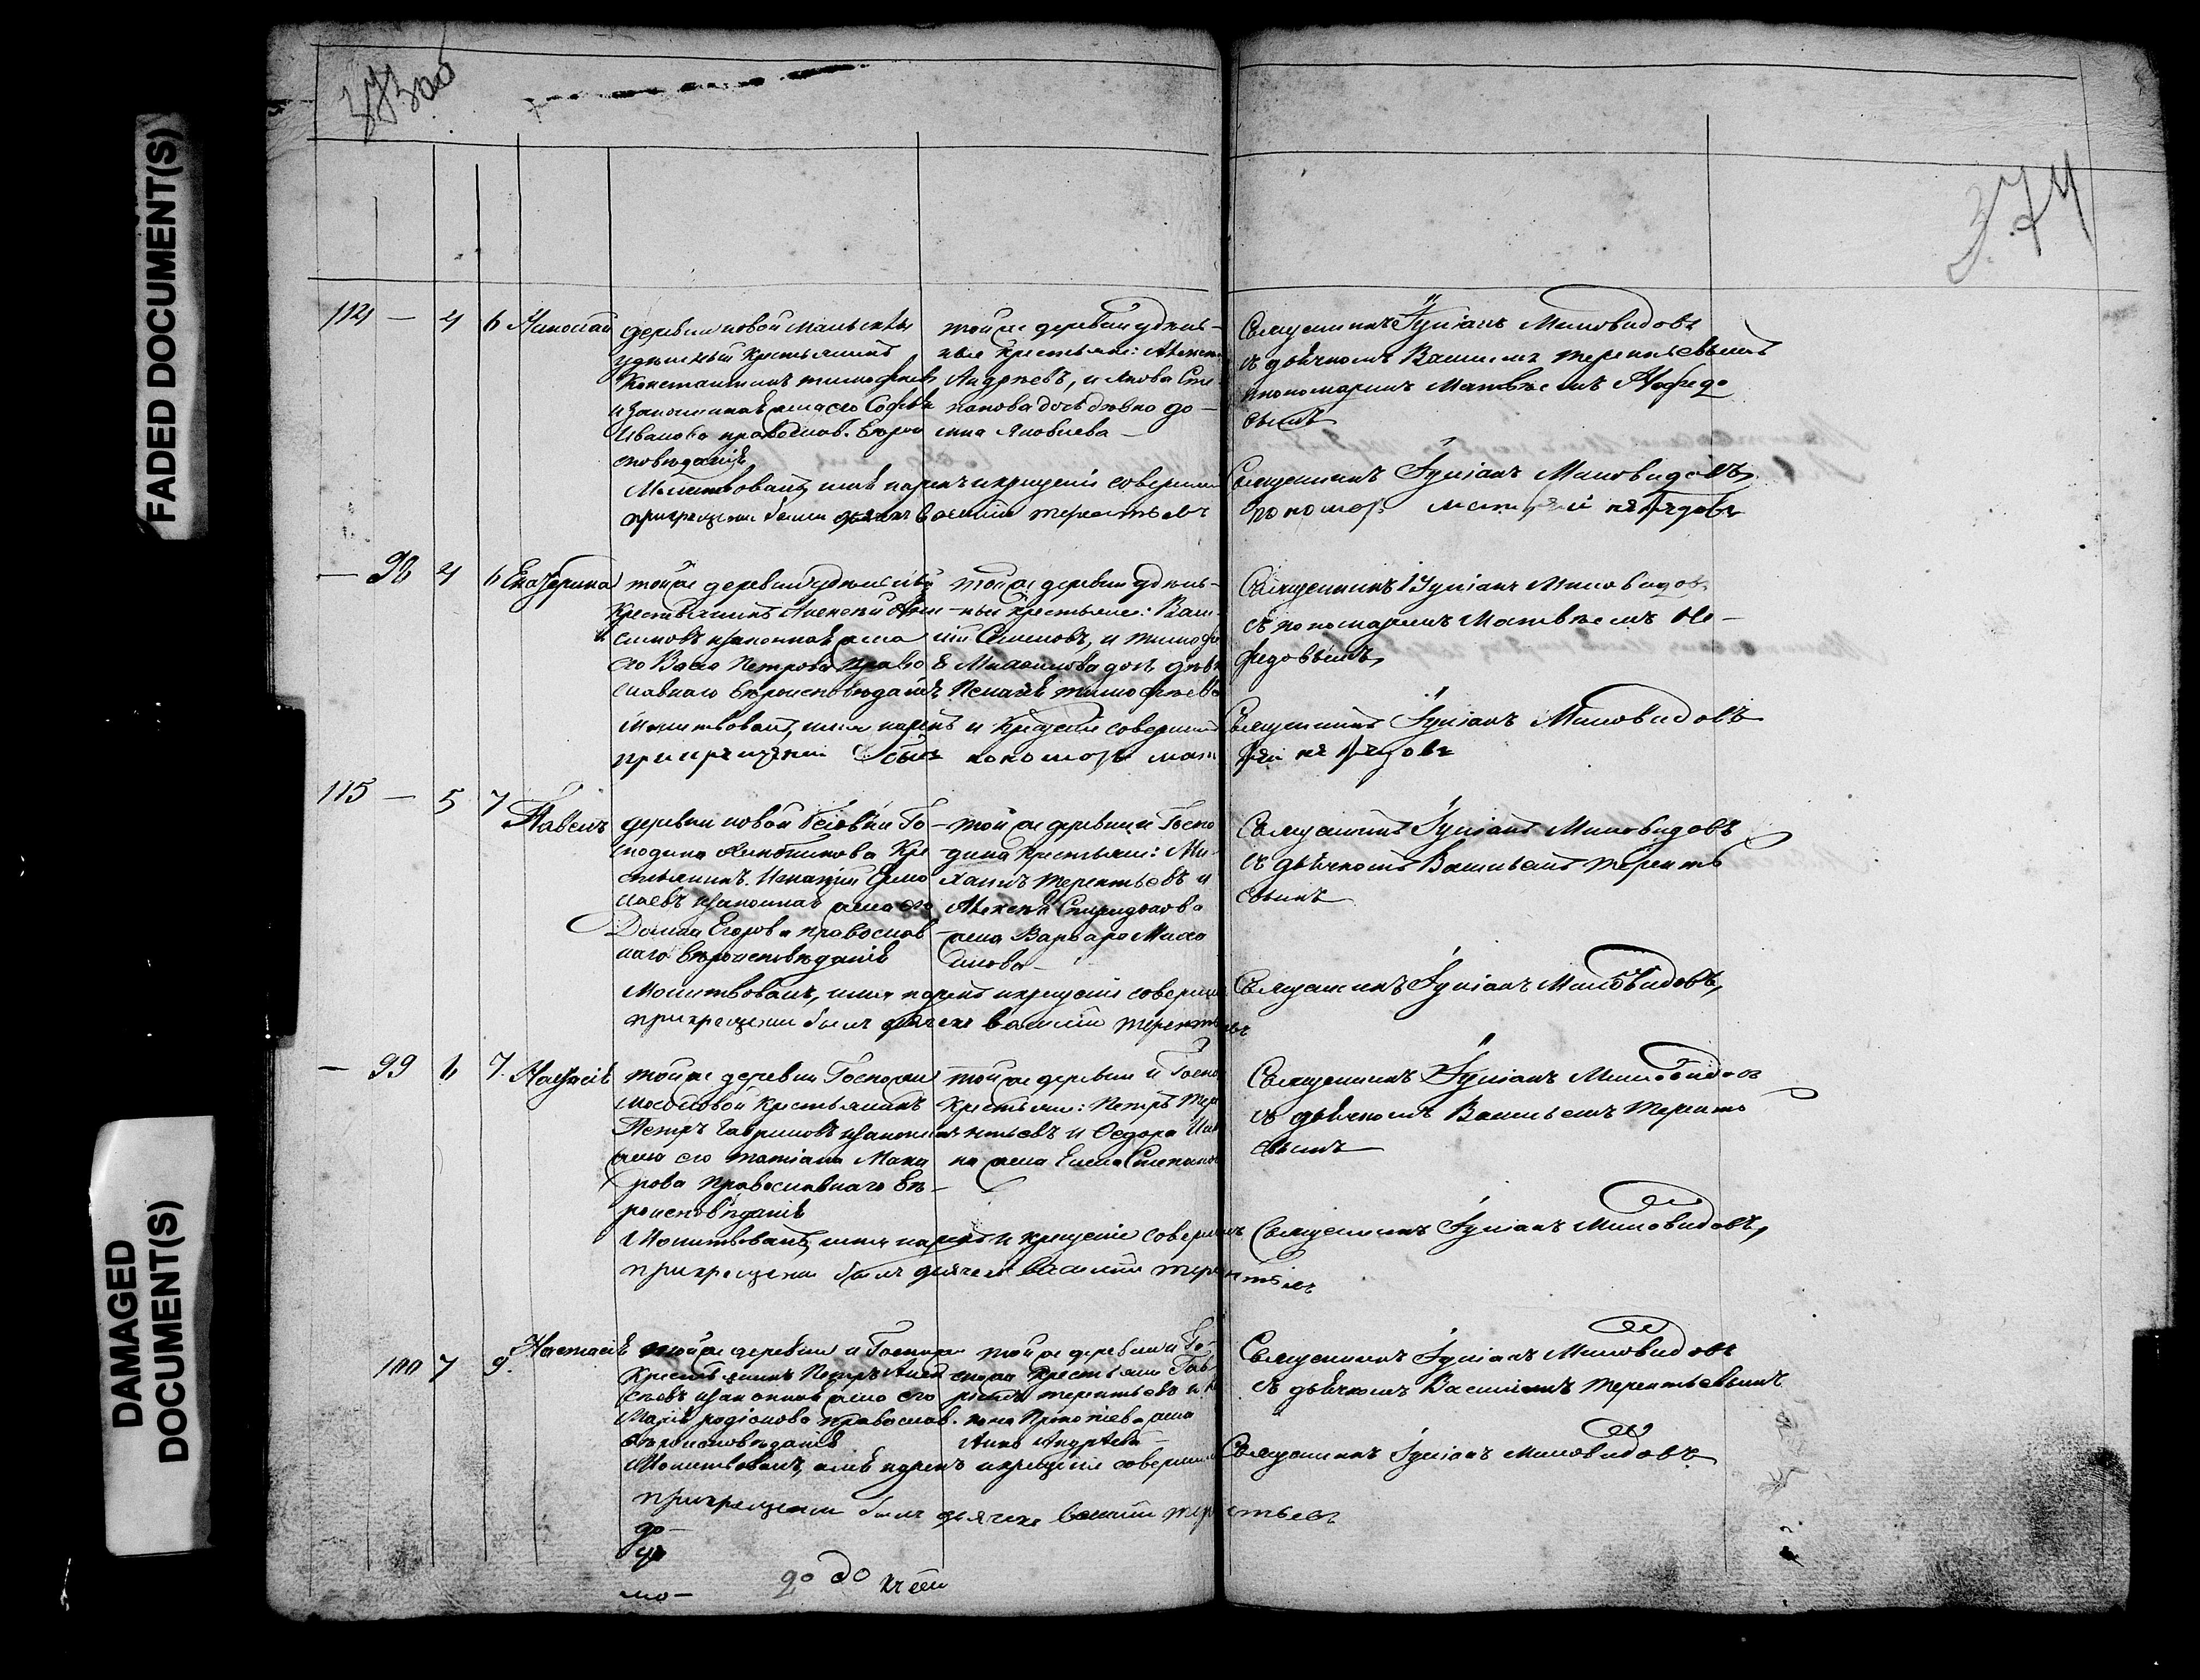 FADED DOCUMENT(S)
DAMAGED
DOCUMENT(S)
373 об
374
114 — 4 6 Николай
деревни новой
удѣльный крестьянинъ
Константинъ Тимофеевъ
и законная жена его Софья
Иванова православ. вѣрои
сповѣданія
тойже деревни удѣль-
ные крестьяне: Алексѣй
Андреевъ, и Якова Сте
панова дочь дѣвка До-
мна Яковлева —
Священникъ Іуліанъ Миловидовъ
съ дьячкомъ Васильемъ Терентьевымъ
и пономаремъ Матвѣемъ Нефедо
вымъ
Молитвовалъ, имя нарекъ и крещеніе совершилъ Священникъ Іуліанъ Миловидовъ,
при крещеніи были дьячекъ Василій Терентьевъ поном. Матфей Нефедовъ
— 98 4 6 Екатерина
тойже деревни удѣльный
крестьянинъ Алексей
и законная жена
его Васса Петрова право
славнаго вѣроисповѣданія
тойже деревни удѣль-
ные крестьяне: Васи
лій Семеновъ, и Тимофе
я Максимова дочь дѣвка
Пелагія Тимофеева
Священникъ Іуліанъ Миловидовъ
съ пономаремъ Матвѣемъ Не-
федовымъ
Молитвовалъ, имя нарекъ и крещеніе совершилъ Священникъ Іуліанъ Миловидовъ
при крещеніи былъ пономарь Матфей Нефедовъ
115 — 5 7 Павелъ
деревни новой Го-
сподина кре
стьянинъ Игнатій Ермо
лаевъ и законная жена его
Домна Егорова православ
наго вѣроисповѣданія
тойже деревни и Госпо
дина крестьяне: Ми
хаилъ Терентьевъ и
Алексѣя Спиридонова
жена Варвара Макси
мова —
Священникъ Іуліанъ Миловидовъ
съ дьячкомъ Васильемъ Теренть
евымъ
Молитвовалъ, имя нарекъ и крещеніе совершилъ Священникъ Іуліанъ Миловидовъ,
при крещеніи былъ дьячекъ Василій Терентьевъ
— 99 6 7. Настасія
тойже деревни Госпожи
крестьянинъ
Петръ Гавриловъ и законная
жена его Татіана Мака
рова православнаго вѣ-
роисповѣданія
тойже деревни и Госпо
крестьяне: Петръ Тере
нтьевъ и Ѳедора Ива
на жена Елена Степанова
Священникъ Іуліанъ Миловидовъ
съ дьячкомъ Васильемъ Теренть
евымъ
Молитвовалъ, имя нарекъ и крещеніе совершилъ Священникъ Іуліанъ Миловидовъ,
при крещеніи былъ дьячекъ Василій Терентьевъ
100 7 9. Настасія
тойже деревни и Госпожи
крестьянинъ Петръ Алек
сѣевъ и законная жена его
Марія Родіонова православ.
вѣроисповѣданія
тойже деревни и Го
спожи крестьяне Гав
рилъ Терентьевъ и
Прокопіева жена
Анна Андреева —
Священникъ Іуліанъ Миловидовъ
съ дьячкомъ Васильемъ Терентьевымъ
Молитвовалъ, имя нарекъ и крещеніе совершилъ Священникъ Іуліанъ Миловидовъ
при крещеніи былъ дьячекъ Василій Терентьевъ
до —
мо —